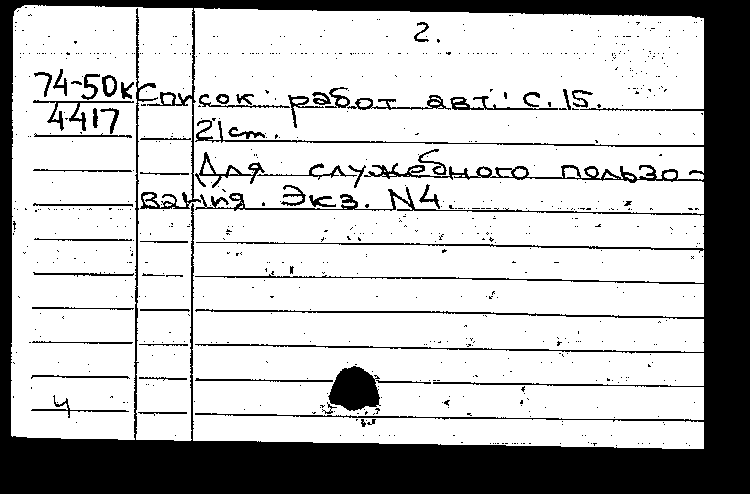 2.
74-50к Список работ авт.: с. 15.
4417 21 см.
Для служебного пользо-
вания. Экз. N4.
4